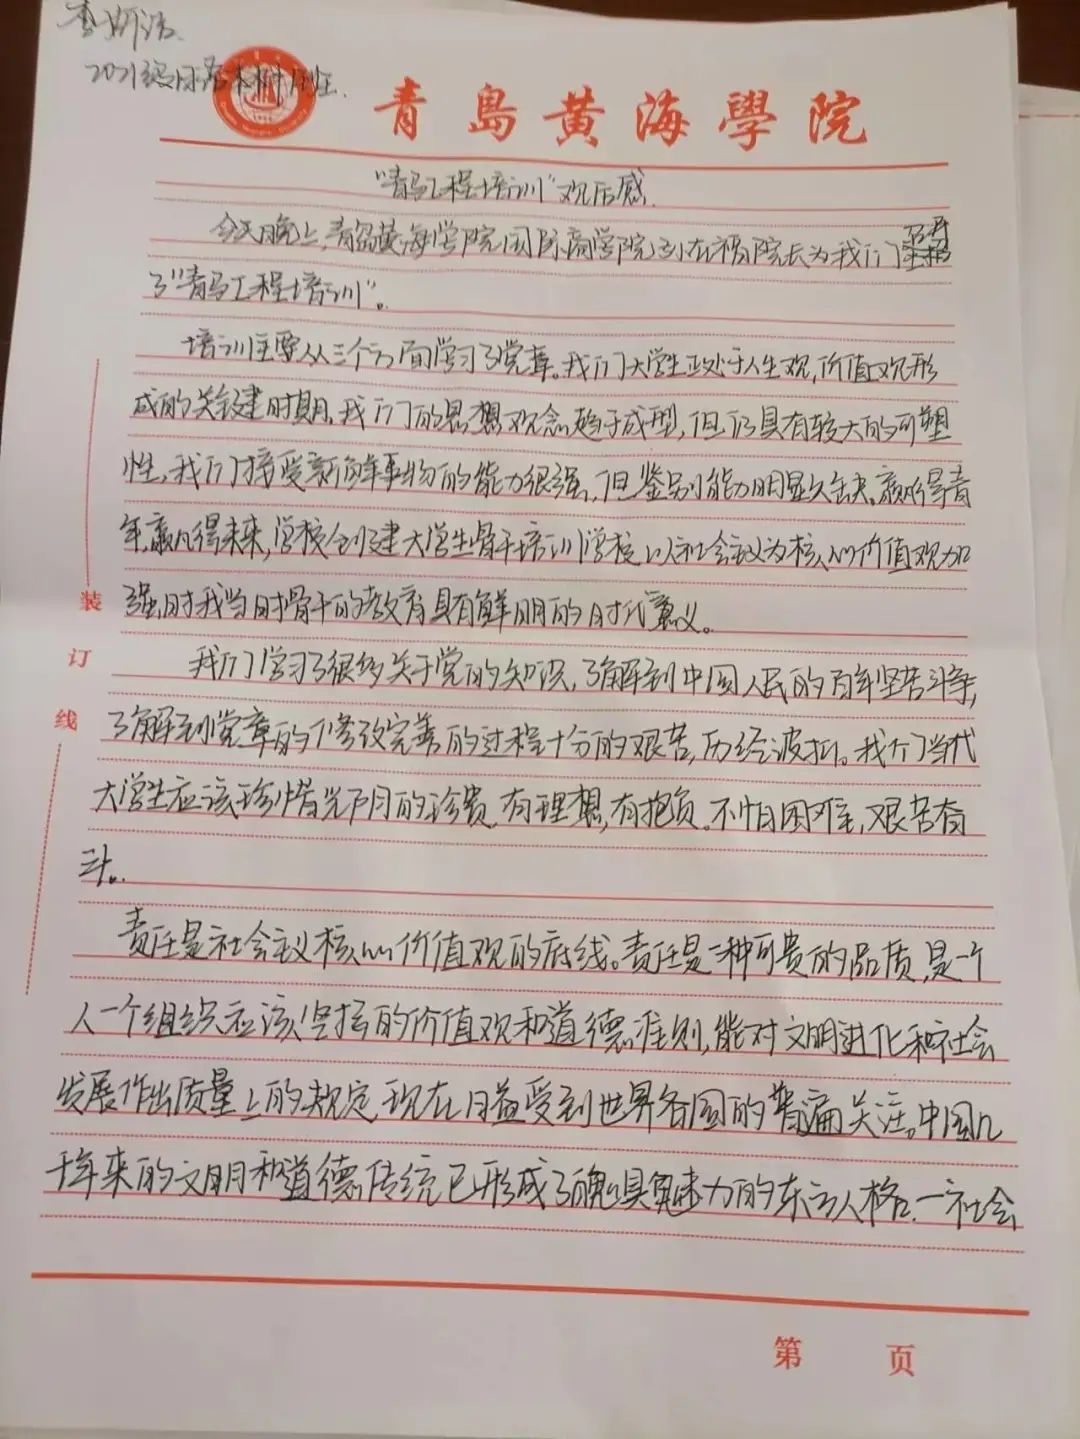 2021级
青島黄海學院
“青马工程培训”观后感.
今天晚上,青岛黄海学院国际商学院 院长为我们
了“青马工程培训”。
培训主要从三个方面学习了党章。我们大学生正处于人生观,价值观形
成的关键时期。我们的思想观念趋于成型,但仍具有较大的可塑
性,我们接受新鲜事物的能力很强,但鉴别能力明显欠缺。赢得青
年,赢得未来,学校创建大学生骨干培训学校,以社会主义为核心的价值观加
强对我当时骨干的教育具有鲜明的时代意义。
我们学习了很多关于党的知识,了解到中国人民的百年坚苦斗争,
了解到党章的修改完善的过程十分的艰苦,历经波折。我们当代
大学生应该珍惜光阴的珍贵,有理想,有抱负。不怕困难,艰苦奋
斗。
责任是社会主义核心价值观的底线。责任是一种可贵的品质,是一个
人一个组织应该坚持的价值观和道德准则,能对文明进化和社会
发展作出质量上的规定,现在日益受到世界各国的普遍关注。中国几
千年来的文明和道德传统已形成了颇具魅力的东方人格。一社会
装
订
线
第 页